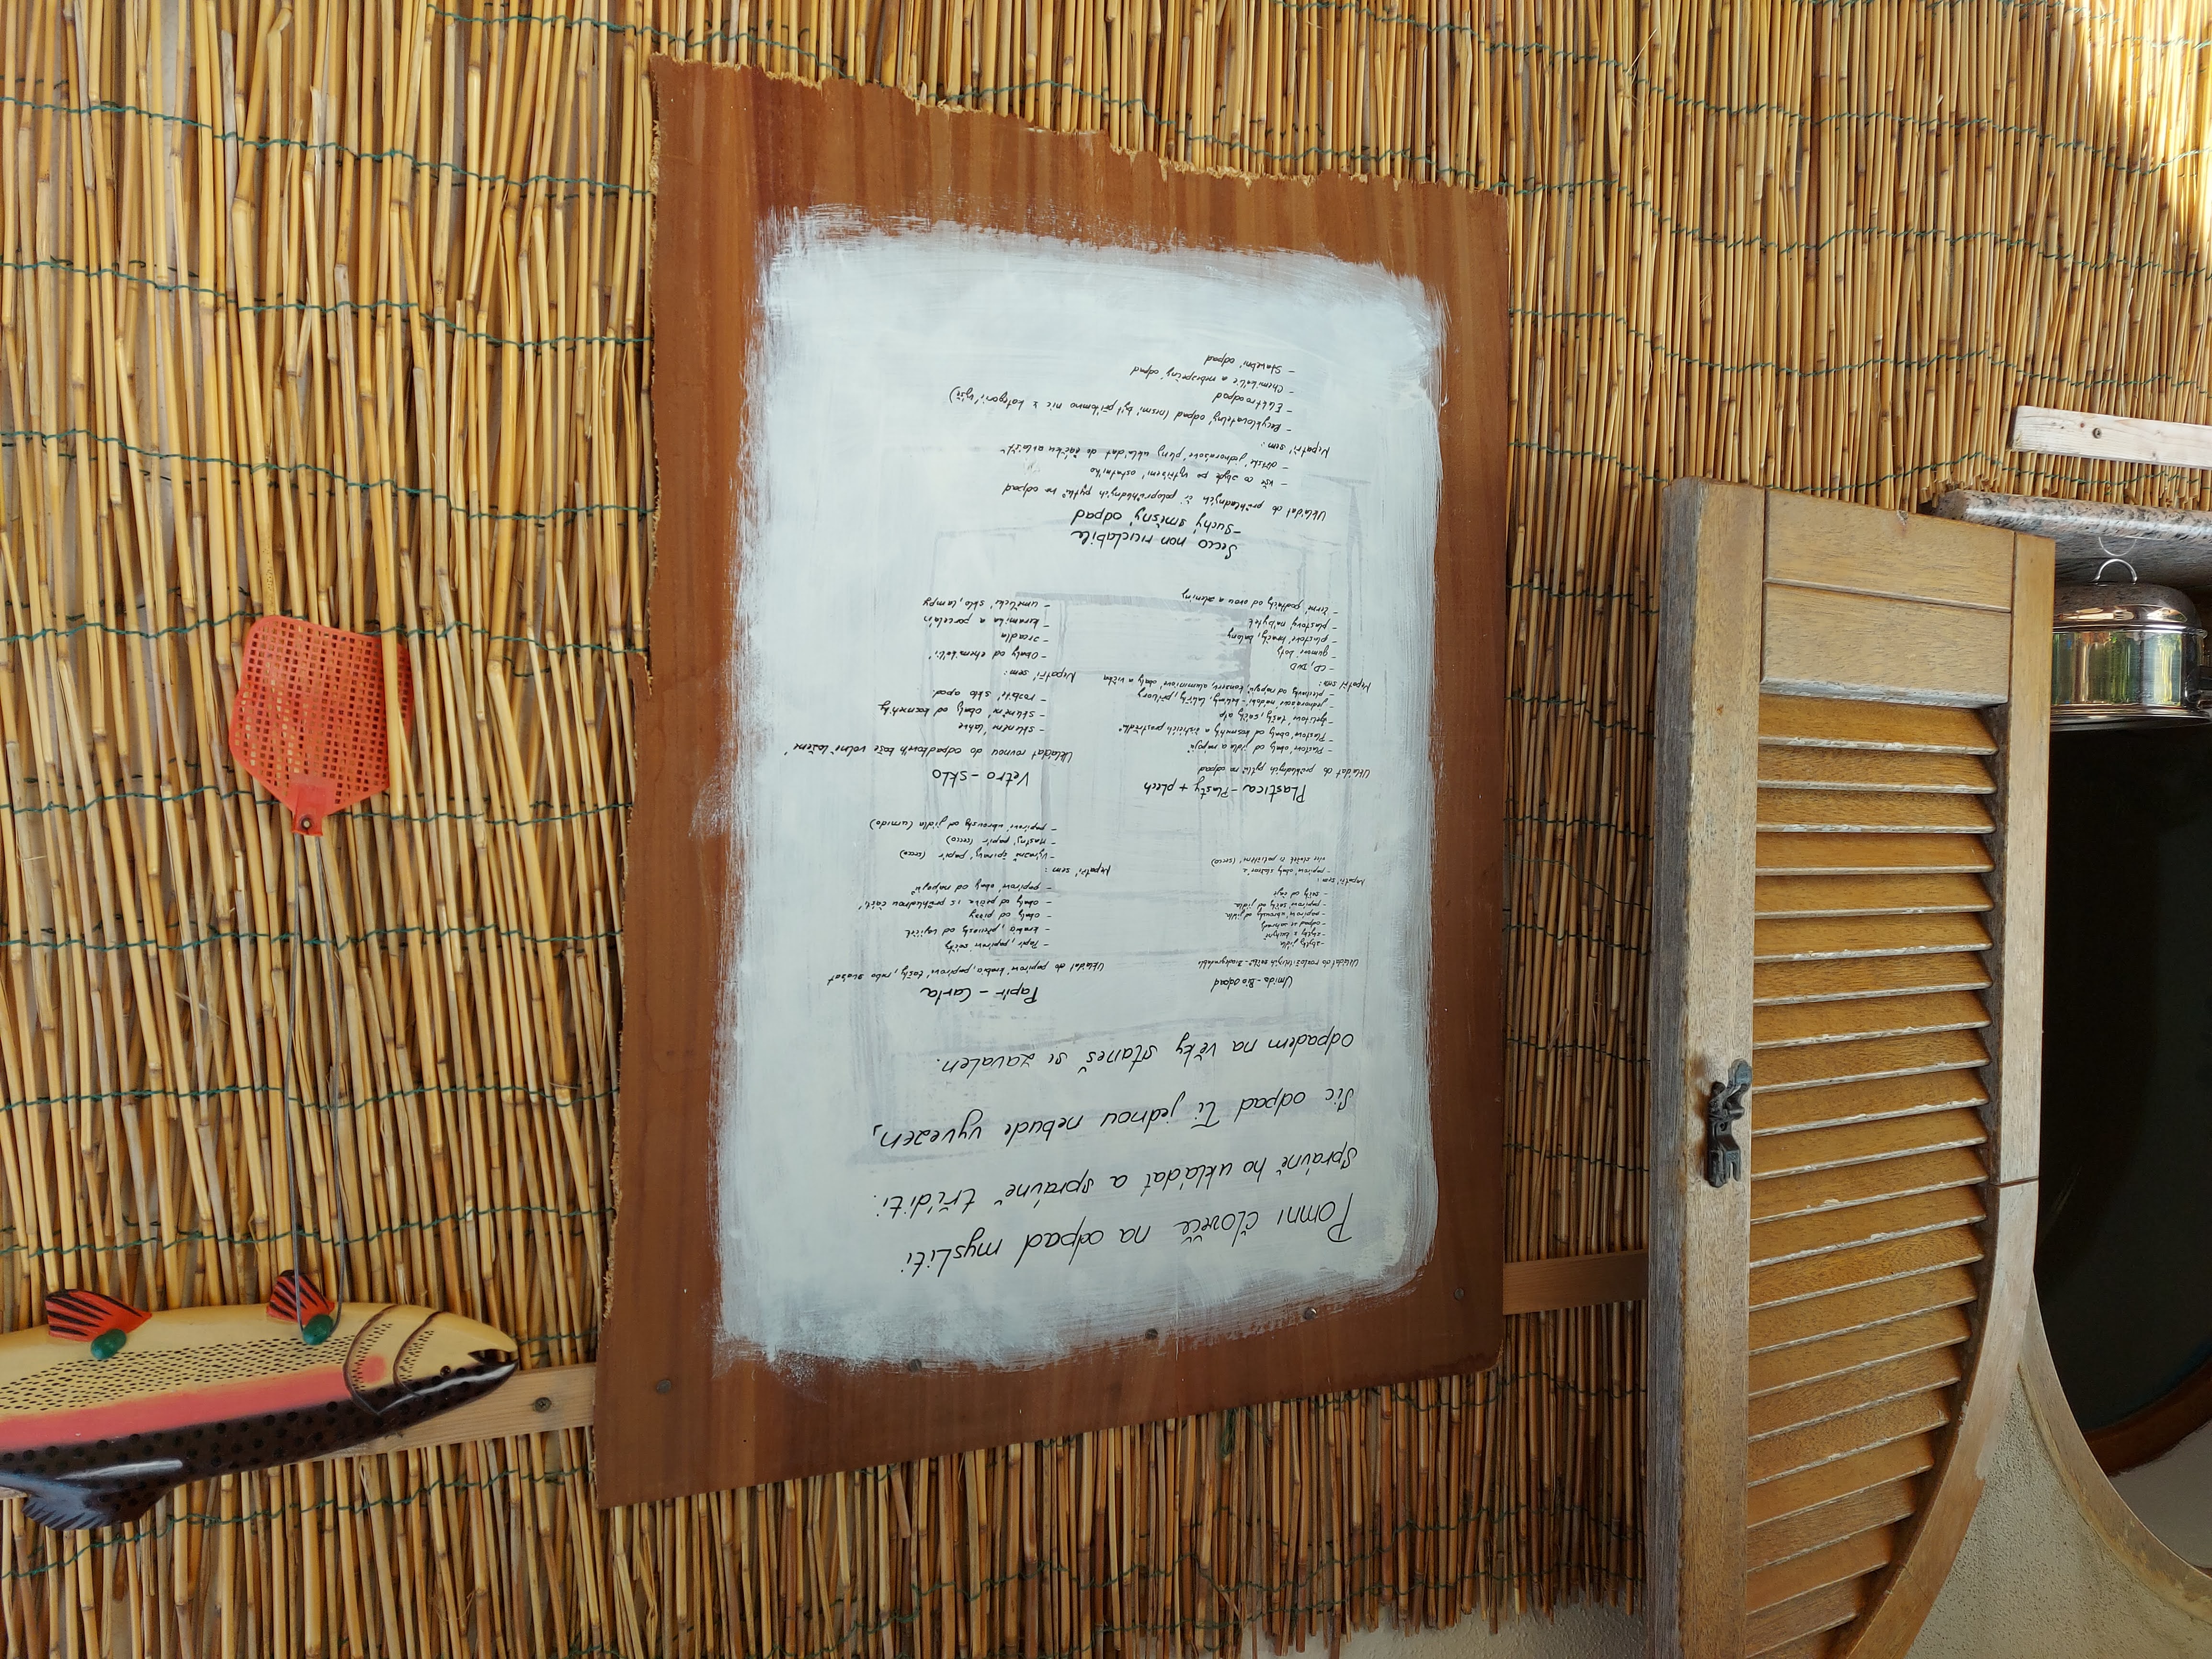 Pomni člověče na odpad mysliti
Správně ho ukládat a správně tříditi.
Sic odpad Ti jednou nebude vyvezen,
odpadem na věky staneš se zavalen.
Umido - Bio odpad
Ukládat do rozložitelných sáčků - Biodegradabili
- zbytky jídla
- zbytky z kuchyně
- odpad ze zahrady
- papírové ubrousky od jídla
- papírové sáčky od jídla
- sáčky od čaje
Nepatří sem:
- papírové obaly složené z
více složek či potištění (secco)
Papír - Carta
Ukládat do papírové krabice, papírové tašky, nebo svázat
- Papír, papírové sáčky
- krabice, přenosky od vajíček
- obaly od pizzy
- obaly od pečiva i s průhlednou částí
- papírové obaly od nápojů
Nepatří sem:
- výrazně špinavý papír (secco)
- mastný papír (secco)
- papírové ubrousky od jídla (umido)
Plastica - Plasty + plech
Ukládat do průhledných pytlů na odpad
- Plastové obaly od jídla a nápojů
- Plastové obaly od kosmetiky a čistících prostředků
- igelitové tašky, sáčky atp
- jednorázové nádobí - kelímky, talířky, příbory
- plechovky od nápojů, konzerv, aluminiové obaly a víčka
Nepatří sem:
- CD, DVD
- gumové boty
- plastové hračky, balony
- plastový nábytek
- černé podložky od ovoce a zeleniny
Vetro - sklo
Ukládat rovnou do odpadkového koše volně ložené
- skleněné lahve
- skleněné obaly od kosmetiky
- rozbité sklo apod.
Nepatří sem:
- Obaly od chemikálií
- zrcadla
- keramika a porcelán
- umělecké sklo, lampy
Secco non riciclabile
- Suchý směsný odpad
Ukládat do průhledných či poloprůhledných pytlů na odpad
- vše co zbyde po vytřízení ostatního
- dětské jednorázové pleny ukládat do sáčku zvlášť
Nepatří sem:
- Recyklovatelný odpad (nesmí být přítomno nic z kategorií výše)
- Elektroodpad
- Chemikálie a nebezpečný odpad
- Stavební odpad